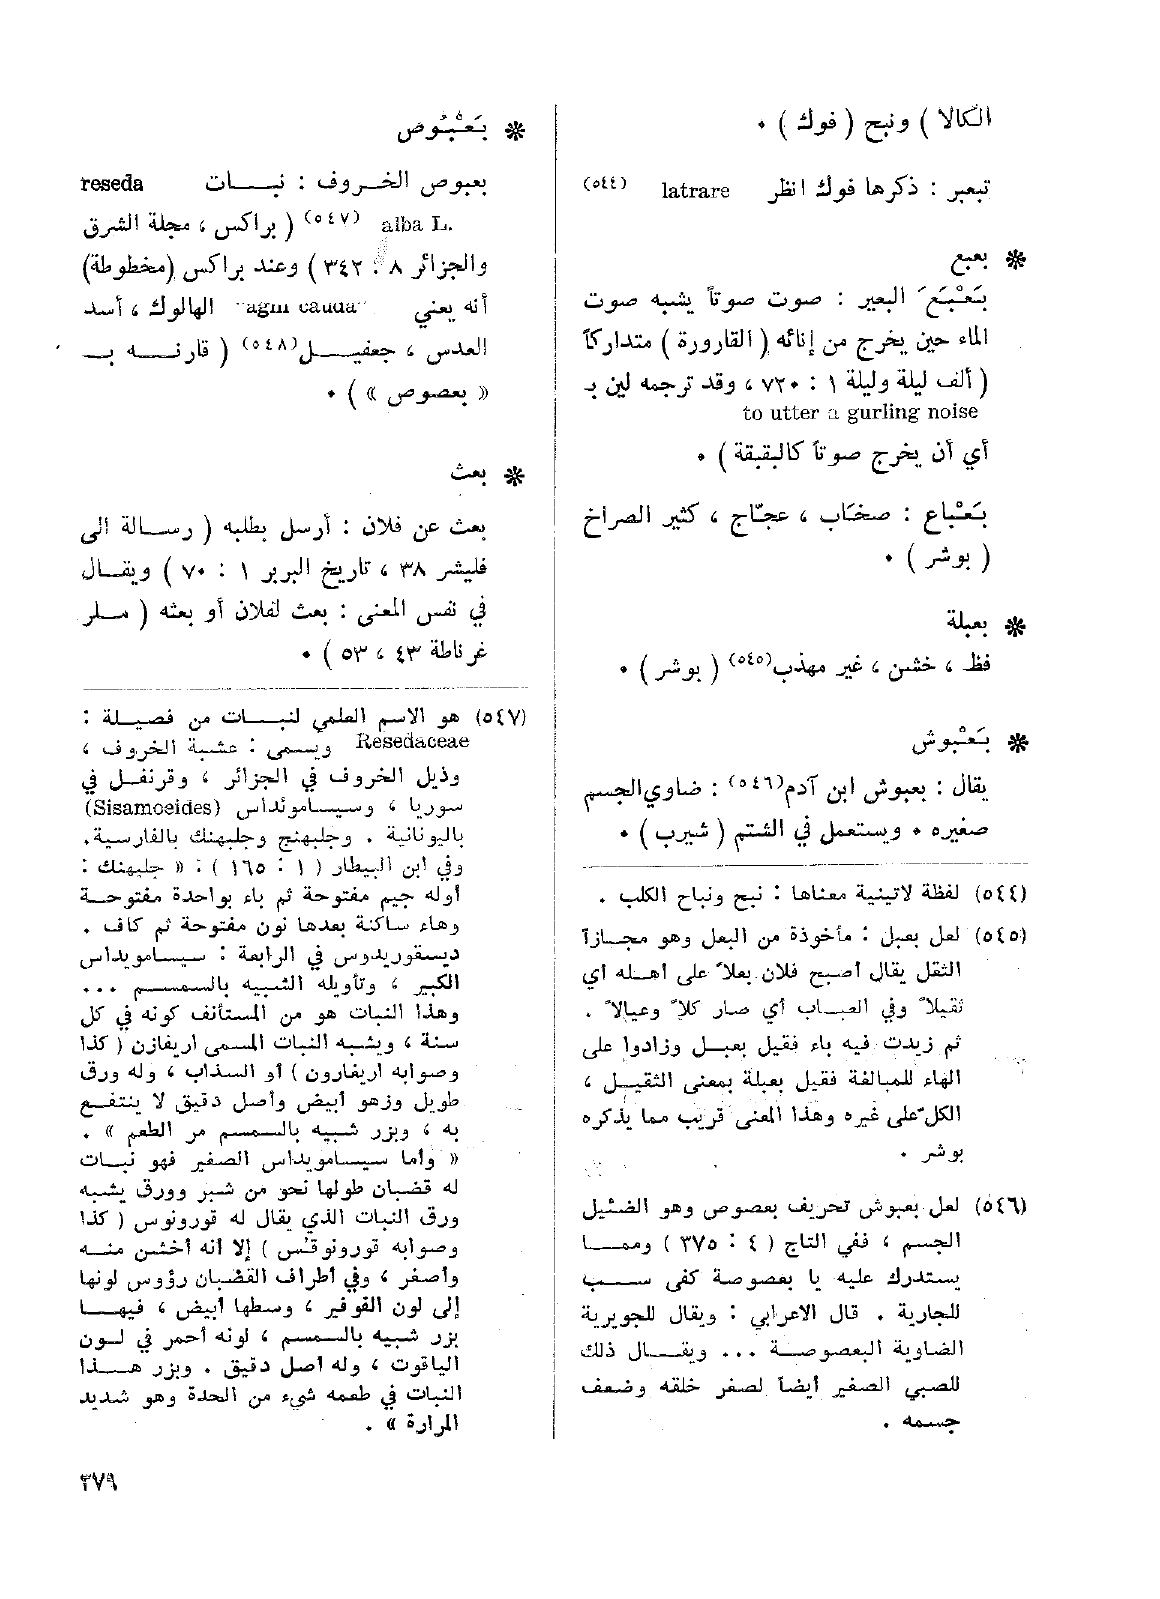 الكالا ) ونبح ( فوك ) •
تبعبر : ذكرها فوك انظر latrare (٥٤٤)
❋ بعبع
بَعْبَعَ البعير : صوت صوتاً يشبه صوت
الماء حين يخرج من إنائه ( القارورة ) متداركاً
( ألف ليلة وليلة ١ : ٧٢٠ ، وقد ترجمه لين بـ
to utter a gurling noise
أي أن يخرج صوتاً كالبقبقة ) •
بَعْباع : صخّاب ، عجّاج ، كثير الصراخ
( بوشر ) •
❋ بعبلة
فظ ، خشن ، غير مهذب(٥٤٥) ( بوشر ) •
❋ بَعْبوش
يقال : بعبوش ابن آدم(٥٤٦) : ضاوي الجسم
صغيره • ويستعمل في الشتم ( شيرب ) •
(٥٤٤) لفظة لاتينية معناها : نبح ونباح الكلب .
(٥٤٥) لعل بعبل : مأخوذة من البعل وهو مجازاً
الثقل يقال أصبح فلان بعلاً على أهله أي
ثقيلاً وفي العباب أي صار كلاً وعيالاً .
ثم زيدت فيه باء فقيل بعبل وزادوا على
الهاء للمبالغة فقيل بعبلة بمعنى الثقيل ،
الكلّ على غيره وهذا المعنى قريب مما يذكره
بوشر .
(٥٤٦) لعل بعبوش تحريف بعصوص وهو الضئيل
الجسم ، ففي التاج ( ٤ : ٣٧٥ ) ومما
يستدرك عليه يا بعصوصة كفى سب
للجارية . قال الاعرابي : ويقال للجويرية
الضاوية البعصوصة ... ويقال ذلك
للصبي الصغير أيضاً لصغر خلقه وضعف
جسمه .
❋ بَعْبُوص
بعبوص الخروف : نبات reseda
alba L. (٥٤٧) ( براكس ، مجلة الشرق
والجزائر ٨ : ٣٤٢ ) وعند براكس (مخطوطة)
أنه يعني agni cauda الهالوك ، أسد
العدس ، جعفيل(٥٤٨) ( قارنه بـ
« بعصوص » ) •
❋ بعث
بعث عن فلان : أرسل بطلبه ( رسالة الى
فليشر ٣٨ ، تاريخ البربر ١ : ٧٠ ) ويقال
في نفس المعنى : بعث لفلان أو بعثه ( ملر
غرناطة ٤٣ ، ٥٣ ) •
(٥٤٧) هو الاسم العلمي لنبات من فصيلة :
Resedaceae ويسمى : عشبة الخروف ،
وذيل الخروف في الجزائر ، وقرنفل في
سوريا ، وسيساموئداس (Sisamoeides)
باليونانية . وجلبهنج وجلبهنك بالفارسية.
وفي ابن البيطار ( ١ : ١٦٥ ) : « جلبهنك :
أوله جيم مفتوحة ثم باء بواحدة مفتوحة
وهاء ساكنة بعدها نون مفتوحة ثم كاف .
ديسقوريدوس في الرابعة : سيسامويداس
الكبير ، وتأويله الشبيه بالسمسم ...
وهذا النبات هو من المستأنف كونه في كل
سنة ، ويشبه النبات المسمى اريفازن ( كذا
وصوابه اريفارون ) أو السذاب ، وله ورق
طويل وزهو أبيض وأصل دقيق لا ينتفع
به ، وبزر شبيه بالسمسم مر الطعم » .
« وأما سيسامويداس الصغير فهو نبات
له قضبان طولها نحو من شبر وورق يشبه
ورق النبات الذي يقال له قورونوس ( كذا
وصوابه قورونوقس ) إلا أنه أخشن منه
وأصغر ، وفي أطراف القضبان رؤوس لونها
إلى لون الفوفير ، وسطها أبيض ، فيها
بزر شبيه بالسمسم ، لونه أحمر في لون
الياقوت ، وله أصل دقيق . وبزر هذا
النبات في طعمه شيء من الحدة وهو شديد
المرارة » .
٣٧٩